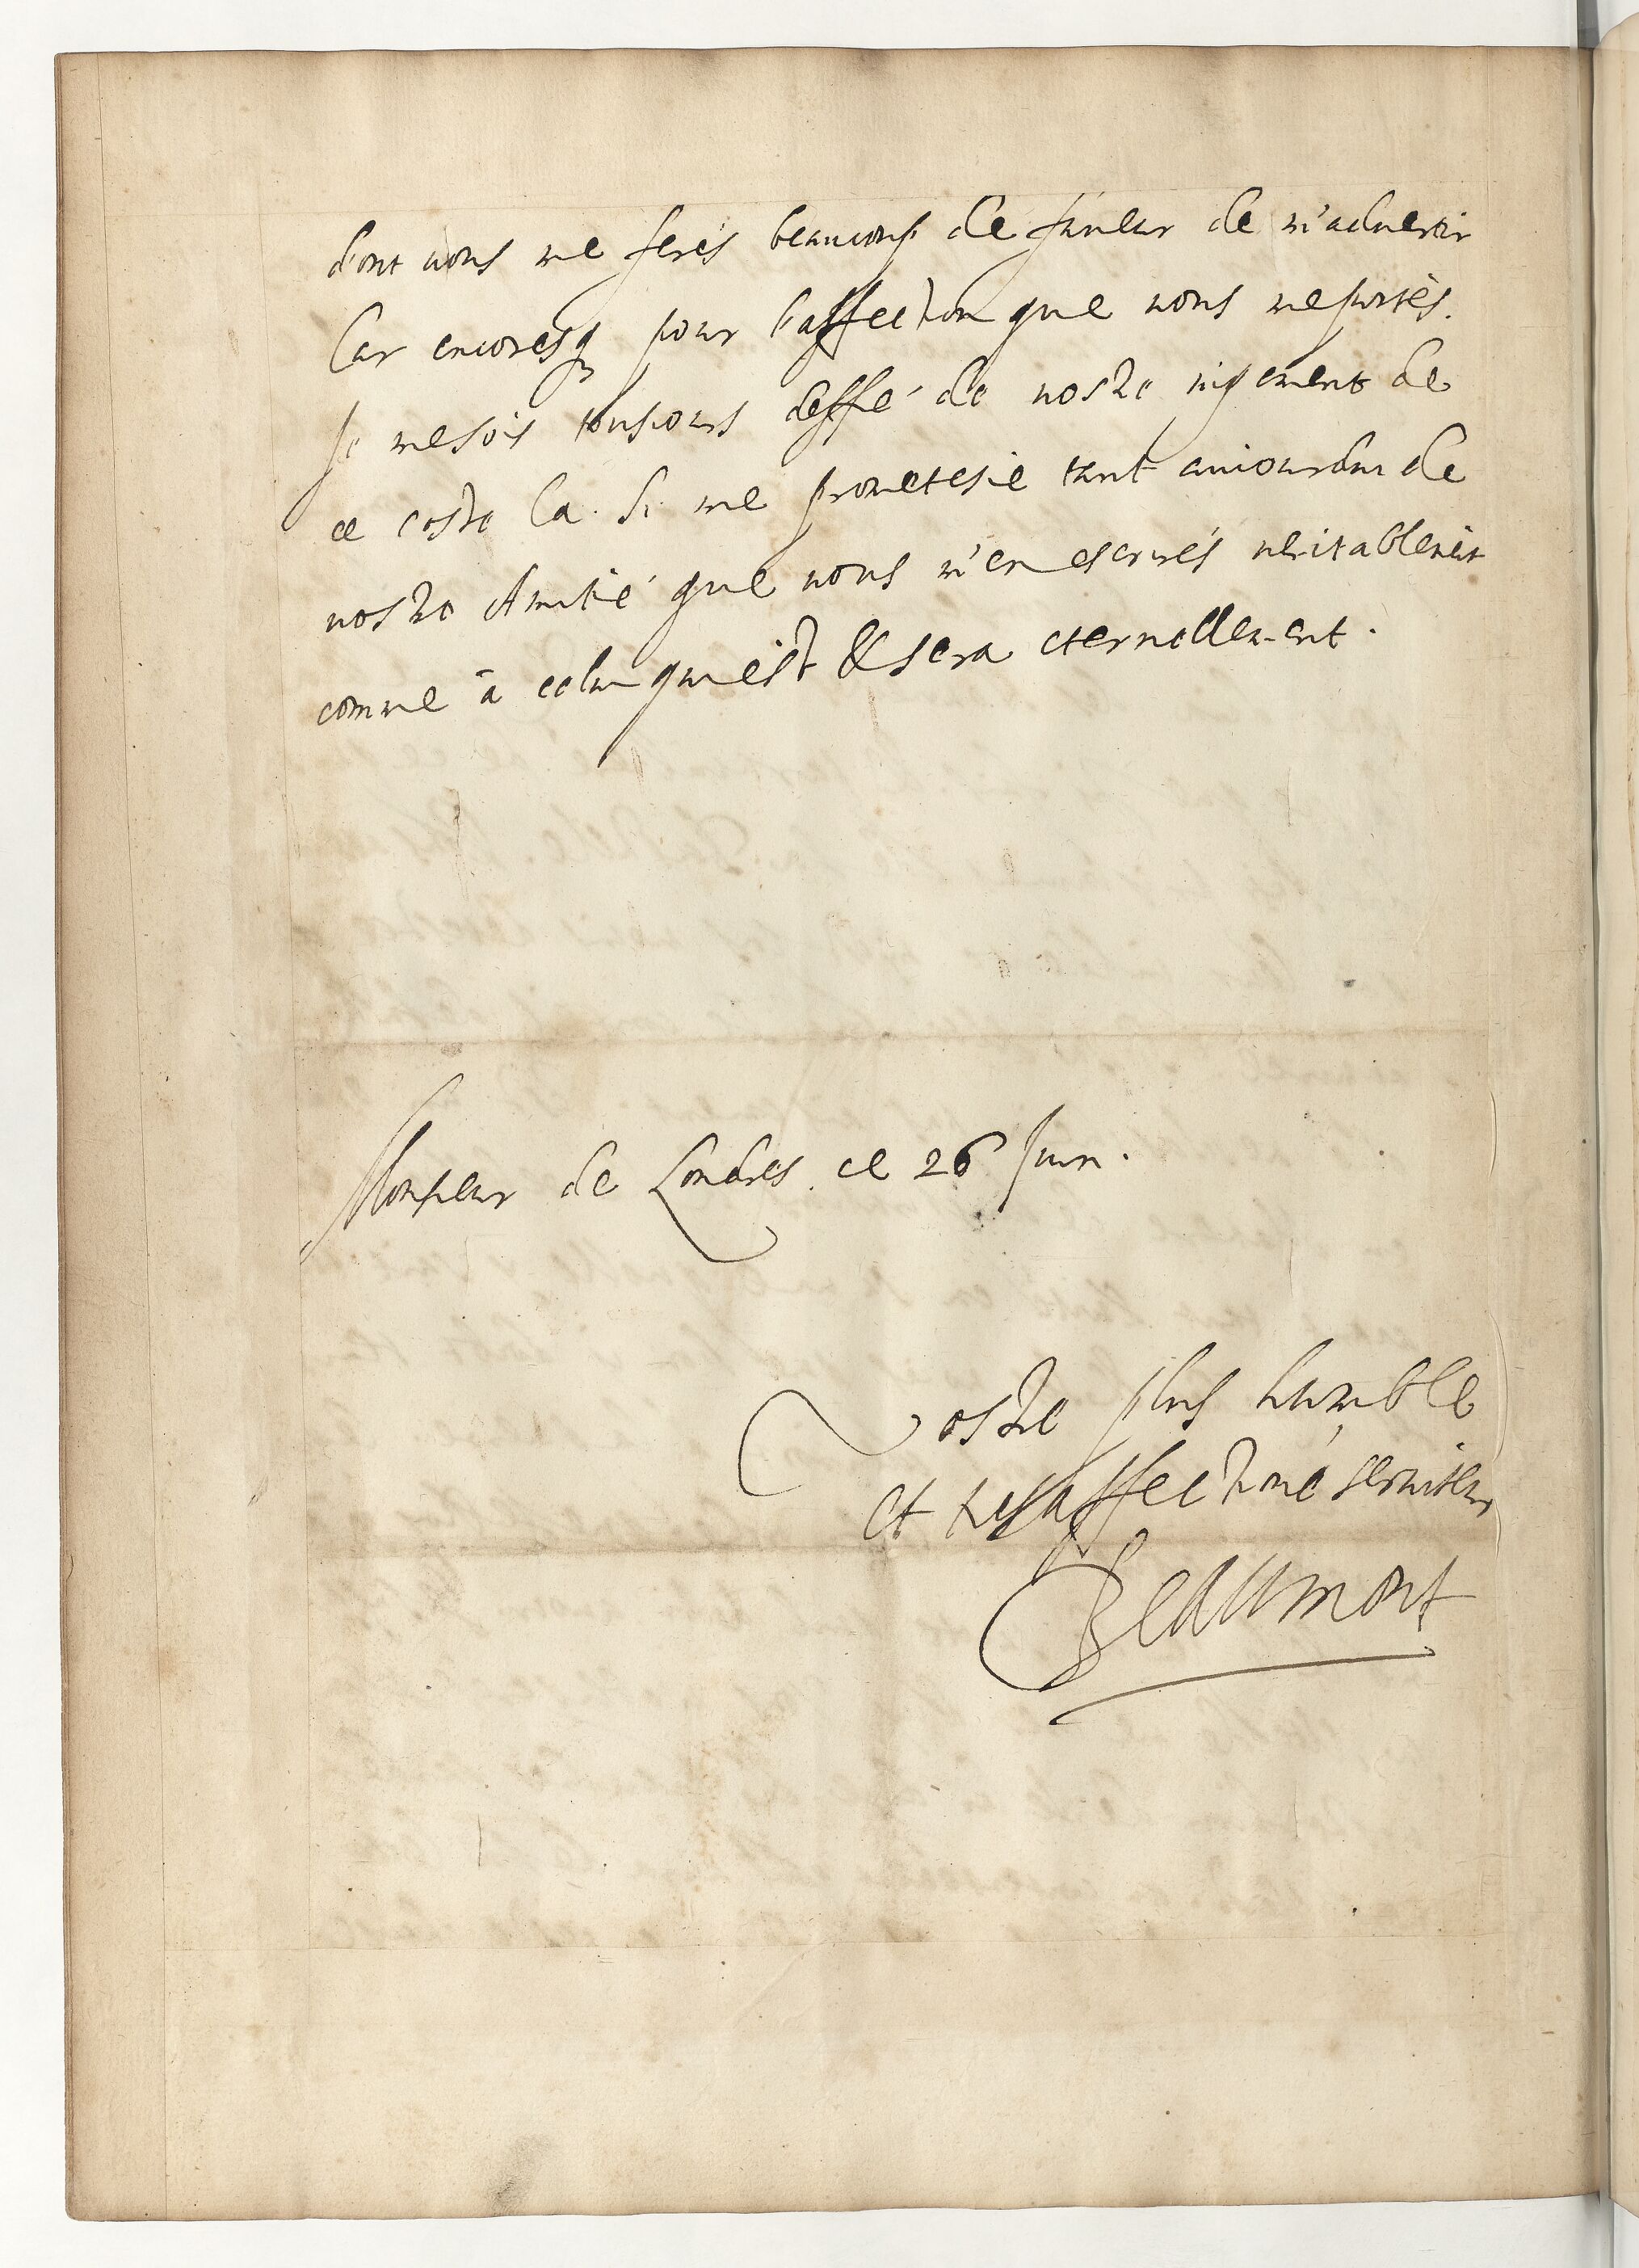 dont vous me ferés beaucoup de faueur de m'aduertir
Car encoresq pour l'affection que vous me portés.
Je me sois tousiours deffié de vostre iugement de
ce costé la. Si me prometesie tant auiourdui de
vostre Amitié que vous m'en escriués veritablement
comme à celui qui est & sera eternellement.
Monsieur de Londres ce 26 Juin.
Vostre plus humble
et tresaffectioné seruiteur
Beaumont